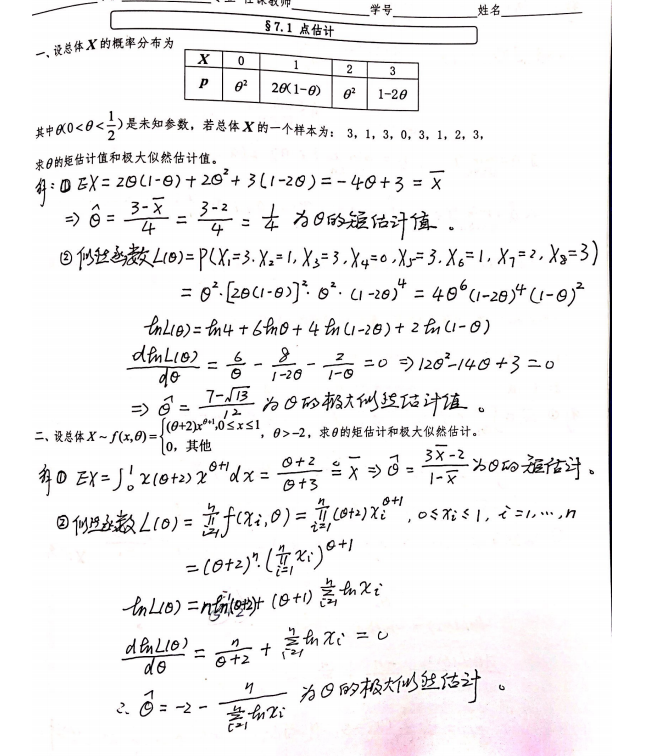 学号 姓名
§7.1 点估计
一、设总体X的概率分布为
X 0 1 2 3
P θ² 2θ(1-θ) θ² 1-2θ
其中θ(0<θ<1/2)是未知参数，若总体X的一个样本为：3，1，3，0，3，1，2，3，
求θ的矩估计值和极大似然估计值。
解：① EX=2θ(1-θ)+2θ²+3(1-2θ)=-4θ+3=X̄
⇒ θ̂ = (3-X̄)/4 = (3-2)/4 = 1/4 为θ的矩估计值。
②似然函数L(θ)=P(X₁=3,X₂=1,X₃=3,X₄=0,X₅=3,X₆=1,X₇=2,X₈=3)
=θ²·[2θ(1-θ)]²·θ²·(1-2θ)⁴=4θ⁶(1-2θ)⁴(1-θ)²
lnL(θ)=ln4+6lnθ+4ln(1-2θ)+2ln(1-θ)
dlnL(θ)/dθ = 6/θ - 8/(1-2θ) - 2/(1-θ) =0 ⇒12θ²-14θ+3=0
⇒ θ̂ = (7-√13)/12 为θ的极大似然估计值。
二、设总体X~f(x,θ)={(θ+2)x^(θ+1),0≤x≤1 0，其他，θ>-2，求θ的矩估计和极大似然估计。
解① EX=∫₀¹x(θ+2)x^(θ+1)dx= (θ+2)/(θ+3) ≙ X̄ ⇒ θ̂ = (3X̄-2)/(1-X̄) 为θ的矩估计。
②似然函数L(θ)=∏ᵢ₌₁ⁿf(xᵢ,θ)=∏ᵢ₌₁ⁿ(θ+2)xᵢ^(θ+1)，0≤xᵢ≤1，i=1,…,n
=(θ+2)ⁿ·(∏ᵢ₌₁ⁿxᵢ)^(θ+1)
lnL(θ)=nln(θ+2)+(θ+1)∑ᵢ₌₁ⁿlnxᵢ
dlnL(θ)/dθ = n/(θ+2) + ∑ᵢ₌₁ⁿlnxᵢ =0
∴ θ̂ =-2- n/(∑ᵢ₌₁ⁿlnxᵢ) 为θ的极大似然估计。